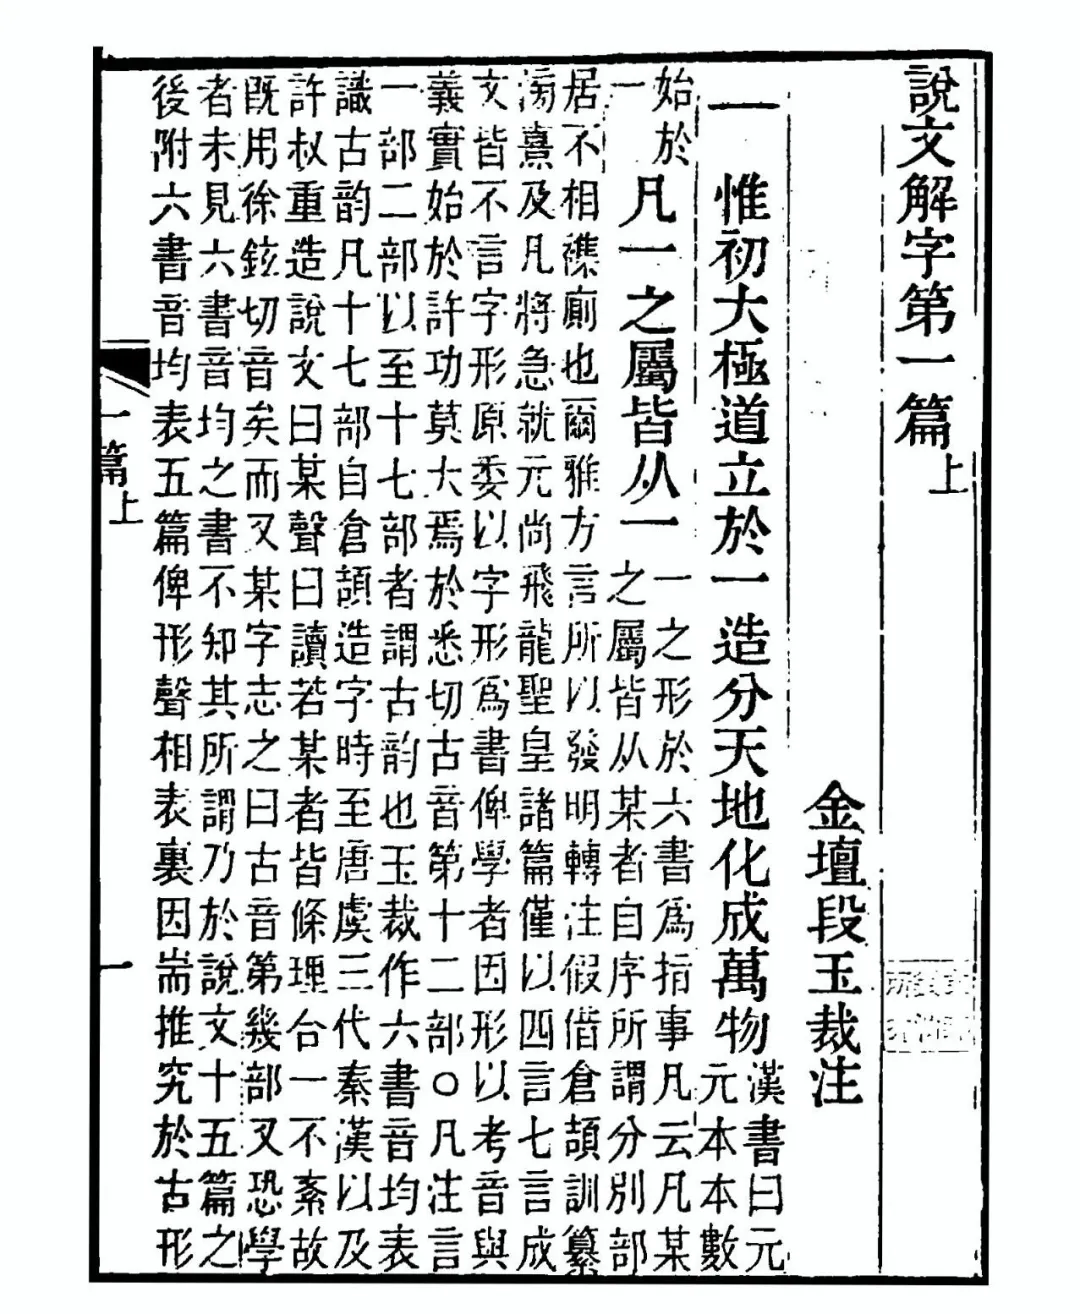 說文解字第一篇上
金壇段玉裁注
一 惟初大極道立於一造分天地化成萬物漢書曰元
元本本數
始於
一
凡一之屬皆从一
一之形於六書爲指事凡云凡某
之屬皆从某者自序所謂分別部
居不相襍廁也爾雅方言所以發明轉注假借倉頡訓纂
滂熹及凡將急就元尚飛龍聖皇諸篇僅以四言七言成
文皆不言字形原委以字形爲書俾學者因形以考音與
義實始於許功莫大焉於悉切古音第十二部○凡注言
一部二部以至十七部者謂古韵也玉裁作六書音均表
識古韵凡十七部自倉頡造字時至唐虞三代秦漢以及
許叔重造說文曰某聲曰讀若某者皆條理合一不紊故
既用徐鉉切音矣而又某字志之曰古音第幾部又恐學
者未見六書音均之書不知其所謂乃於說文十五篇之
後附六書音均表五篇俾形聲相表裏因耑推究於古形
一篇上
一